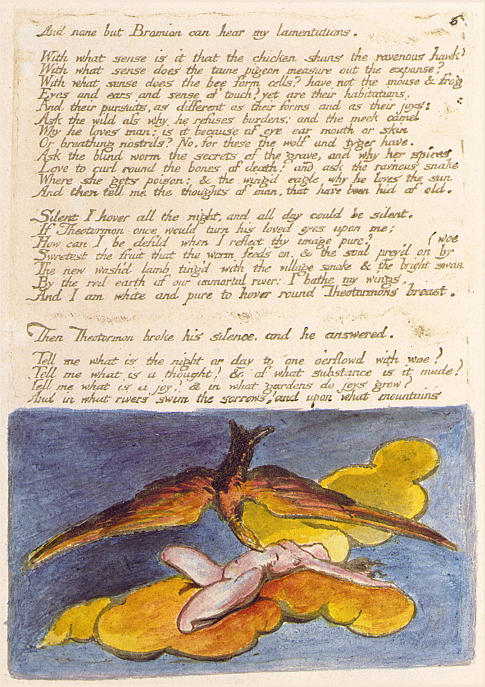 And none but Bromion can hear my lamentations.
With what sense is it that the chicken shuns the ravenous hawk?
With what sense does the tame pigeon measure out the expanse?
With what sense does the bee form cells? have not the mouse & frog
Eyes and ears and sense of touch? yet are their habitations,
And their pursuits, as different as their forms and as their joys:
Ask the wild ass why he refuses burdens: and the meek camel
Why he loves man: is it because of eye ear mouth or skin
Or breathing nostrils? No, for these the wolf and tyger have.
Ask the blind worm the secrets of the grave, and why her spires
Love to curl round the bones of death; and ask the rav'nous snake
Where she gets poison: & the wing'd eagle why he loves the sun
And then tell me the thoughts of man, that have been hid of old.
Silent I hover all the night, and all day could be silent,
If Theotormon once would turn his loved eyes upon me;
How can I be defild when I reflect thy image pure? (woe
Sweetest the fruit that the worm feeds on, & the soul prey'd on by
The new wash'd lamb ting'd with the village smoke & the bright swan
By the red earth of our immortal river: I bathe my wings,
And I am white and pure to hover round Theotormons breast.
Then Theotormon broke his silence, and he answered.
Tell me what is the night or day to one o'erflowd with woe?
Tell me what is a thought? & of what substance is it made?
Tell me what is a joy? & in what gardens do joys grow?
And in what rivers swim the sorrows? and upon what mountains